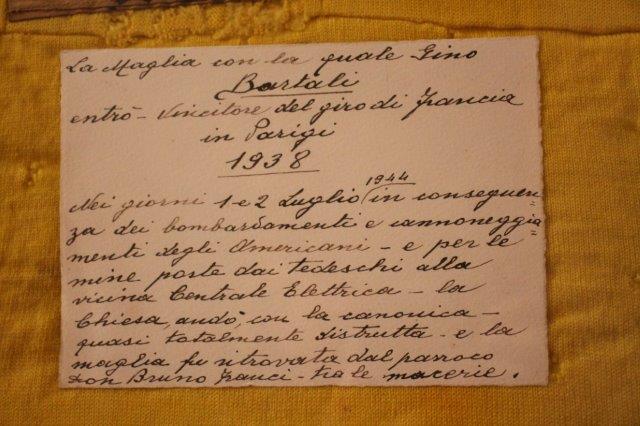 La Maglia con la quale Gino
Bartali
entrò - Vincitore del giro di Francia
in Parigi
1938
Nei giorni 1 e 2 Luglio (1944) in conseguen=
za dei bombardamenti e cannoneggia=
menti degli Americani - e per le
mine poste dai tedeschi alla
vicina Centrale Elettrica - la
Chiesa, andò, con la canonica -
quasi totalmente distrutta - e la
maglia fu ritrovata dal parroco
Don Bruno Franci - tra le macerie.